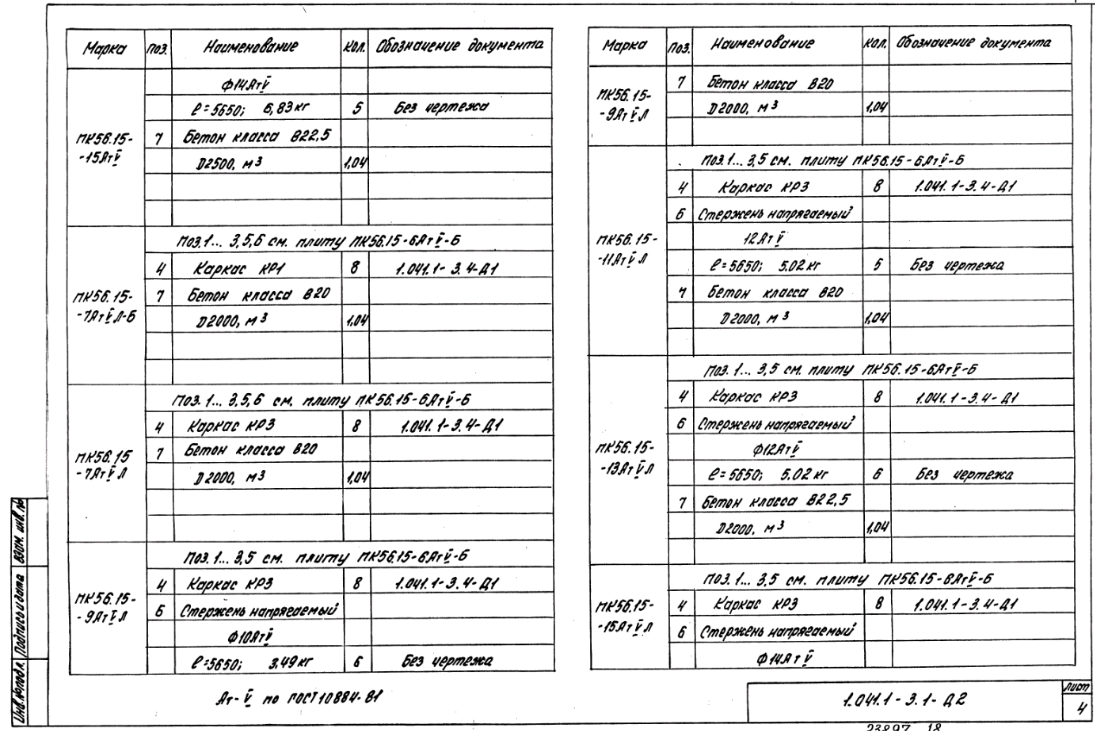 Марка поз. Наименование кол. Обозначение документа
Ф14АтV̄
ℓ=5650; 6,83 кг 5 Без чертежа
ПК56.15- 7 Бетон класса В22,5
-15АтV̄ D2500, м3 1,04
Поз.1... 3,5,6 см. плиту ПК56.15-6АтV̄-Б
4 Каркас КР1 8 1.041.1-3.4-Д1
ПК56.15- 7 Бетон класса В20
-7АтV̄Л-Б D2000, м3 1,04
Поз.1... 3,5,6 см. плиту ПК56.15-6АтV̄-Б
4 Каркас КР3 8 1.041.1-3.4-Д1
ПК56.15 7 Бетон класса В20
-7АтV̄Л D2000, м3 1,04
Поз.1... 3,5 см. плиту ПК56.15-6АтV̄-Б
4 Каркас КР3 8 1.041.1-3.4-Д1
ПК56.15- 6 Стержень напрягаемый
-9АтV̄Л Ф10АтV̄
ℓ=5650; 3,49 кг 6 Без чертежа
Ат-V̄ по ГОСТ10884-81
Марка поз. Наименование кол. Обозначение документа
7 Бетон класса В20
ПК56.15-
-9АтV̄Л D2000, м3 1,04
Поз.1... 3,5 см. плиту ПК56.15-6АтV̄-Б
4 Каркас КР3 8 1.041.1-3.4-Д1
6 Стержень напрягаемый
ПК56.15- 12АтV̄
-11АтV̄Л ℓ=5650; 5.02 кг 5 Без чертежа
7 Бетон класса В20
D2000, м3 1,04
Поз.1... 3,5 см. плиту ПК56.15-6АтV̄-Б
4 Каркас КР3 8 1.041.1-3.4-Д1
6 Стержень напрягаемый
ПК56.15- Ф12АтV̄
-13АтV̄Л ℓ=5650; 5.02 кг 6 Без чертежа
7 Бетон класса В22,5
D2000, м3 1,04
Поз.1... 3,5 см. плиту ПК56.15-6АтV̄-Б
ПК56.15- 4 Каркас КР3 8 1.041.1-3.4-Д1
-15АтV̄Л 6 Стержень напрягаемый
Ф14АтV̄
1.041.1-3.1-Д2
Лист
4
23897 18
Инв.№подл. Подпись и дата Взам. инв.№